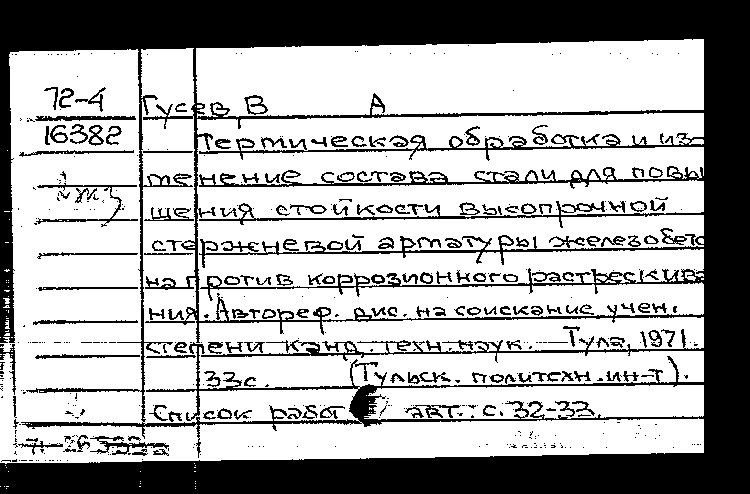 72-4 Гусев, В А
16382 Термическая обработка и из-
менение состава стали для повы
шения стойкости высопрочной
стержневой арматуры железобето
на против коррозионного растрескива
ния. Автореф. дис. на соискание учен.
степени канд. техн. наук. Тула, 1971.
33с. (Тульск. политехн. ин-т).
Список работ авт.: с. 32-33.